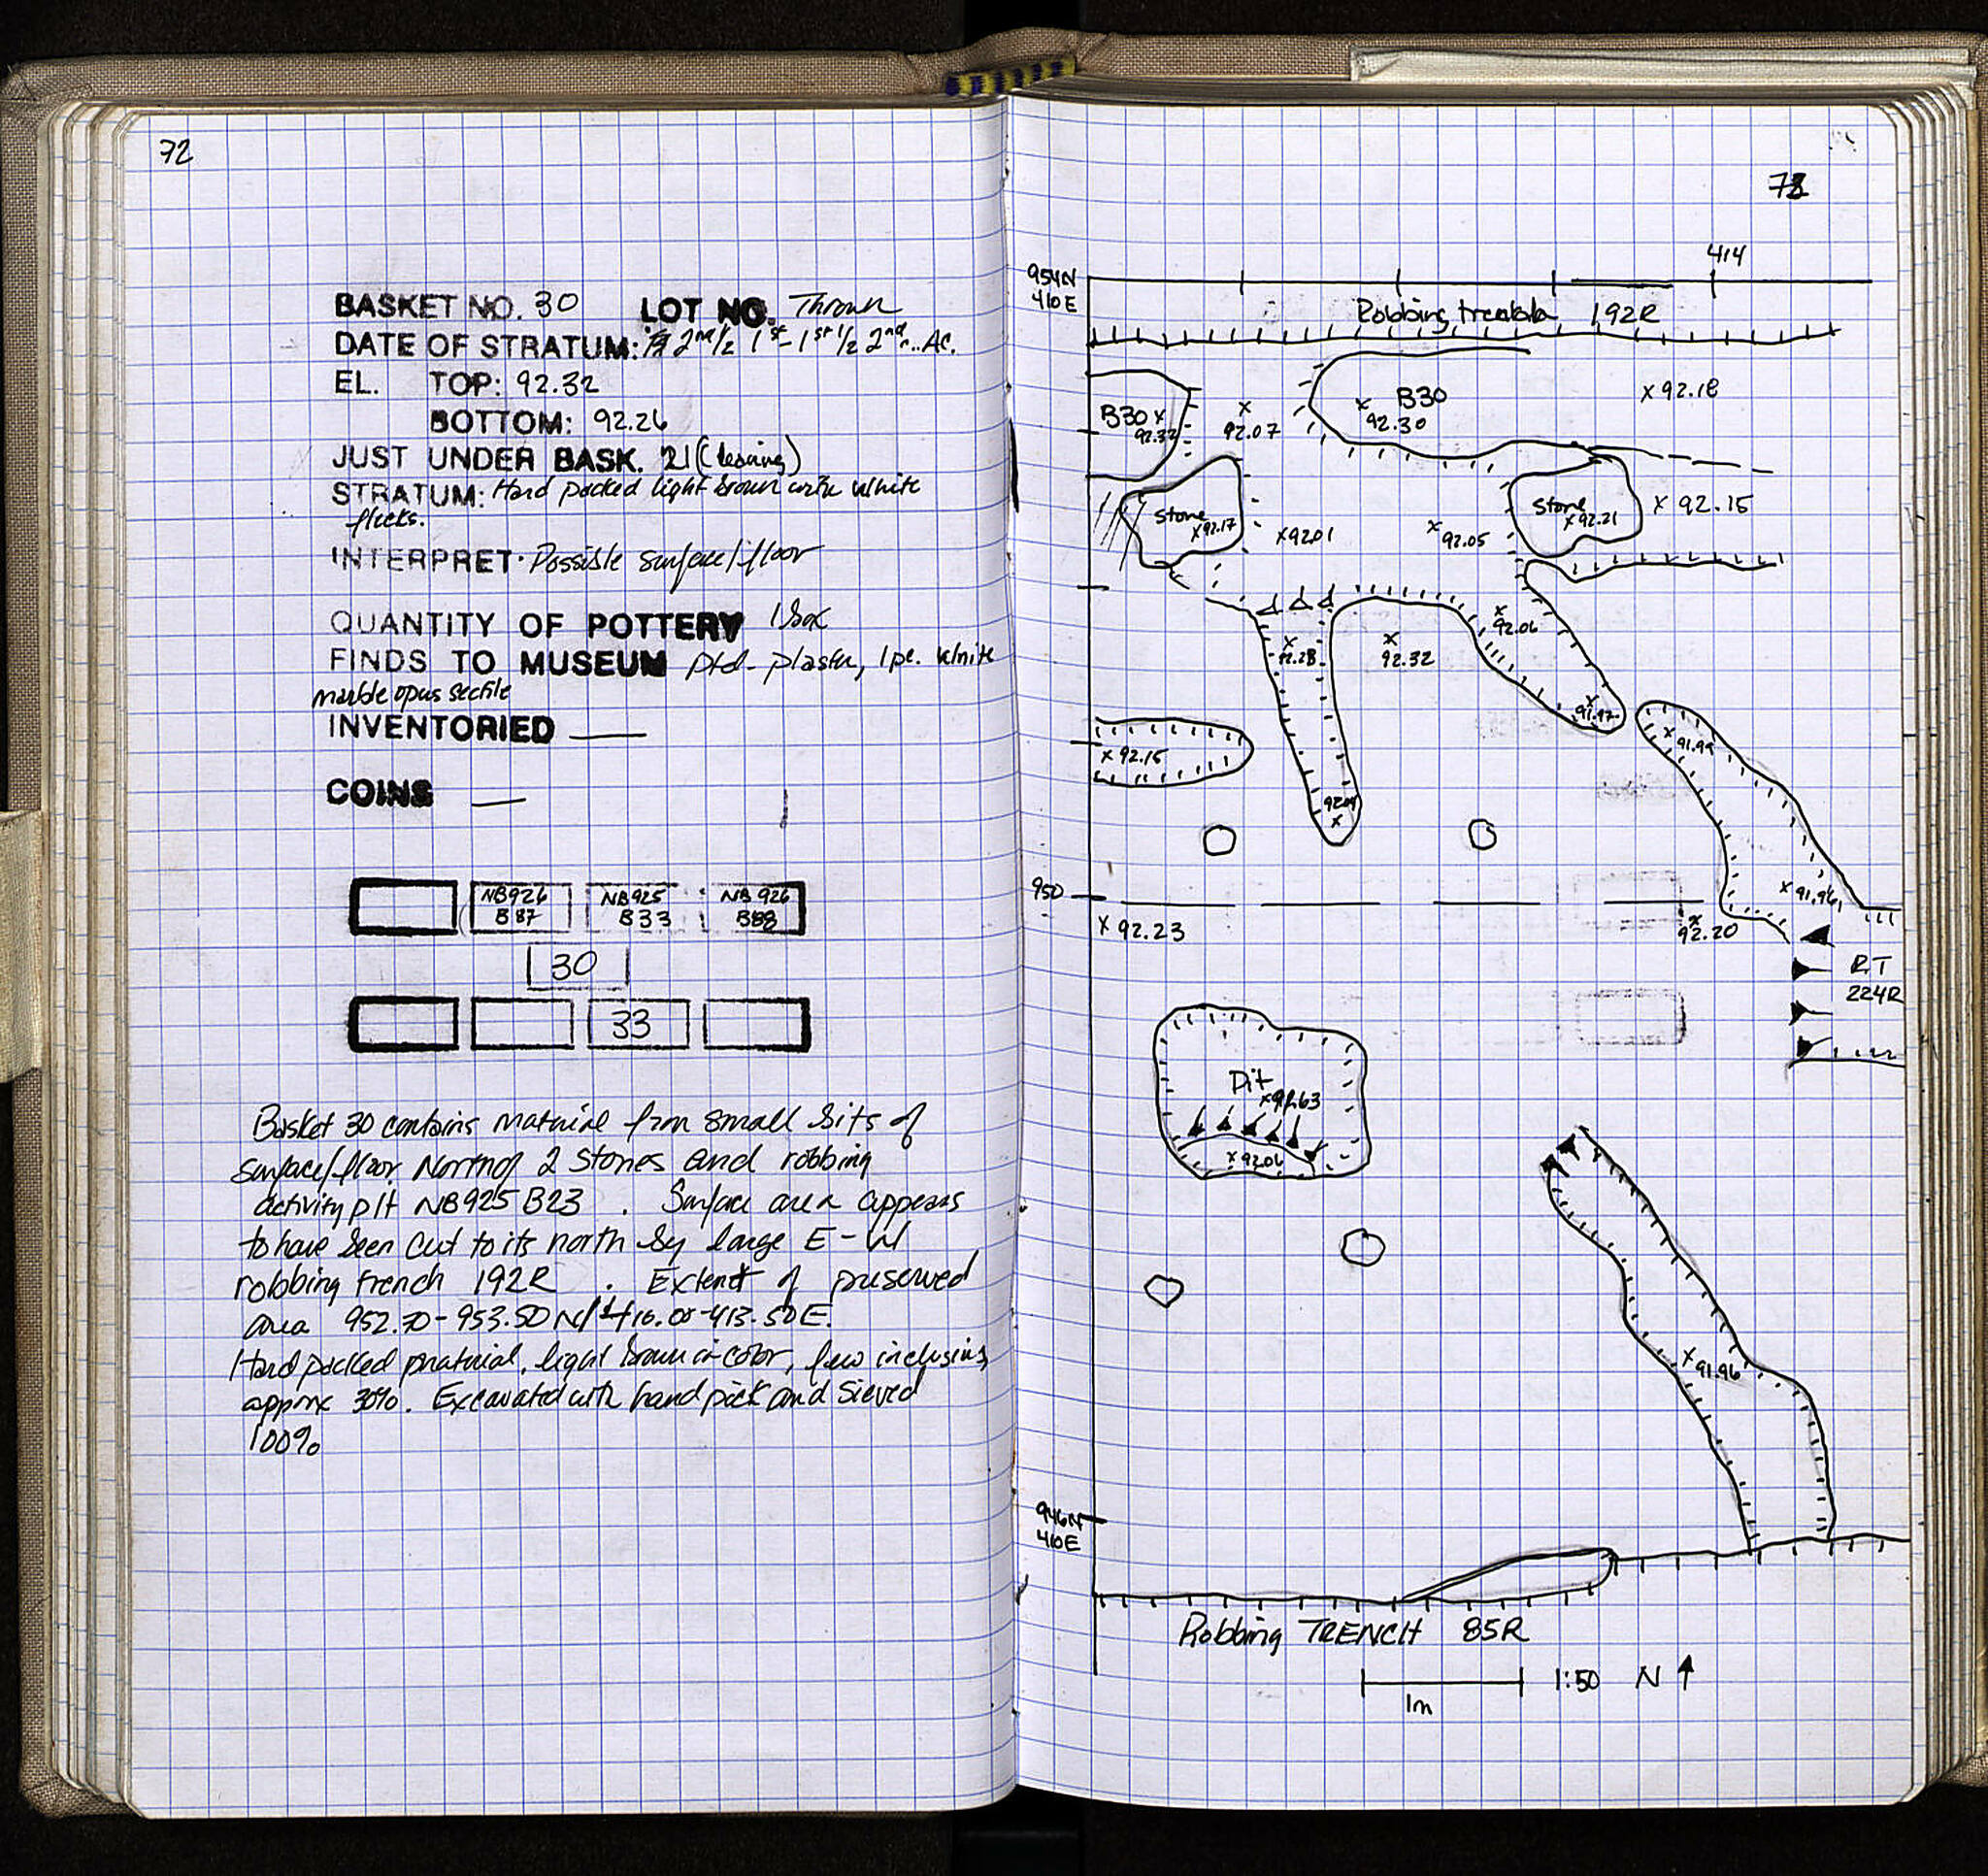 72
BASKET NO. 30 LOT NO. Thrown
DATE OF STRATUM: 2nd 1/2 1st - 1st 1/2 2nd c. AC.
EL. TOP: 92.32
BOTTOM: 92.26
JUST UNDER BASK. 21
STRATUM: Hard packed light brown with white
flecks.
INTERPRET. Possible surface/floor
QUANTITY OF POTTERY 1 box
FINDS TO MUSEUM ptd. plaster, 1 pc. white
marble opus sectile
INVENTORIED —
COINS —
NB926 NB925 NB926
B87 B33 B88
30
33
Basket 30 contains material from small bits of
surface/floor North of 2 stones and robbing
activity pit NB925 B23 . Surface area appears
to have been cut to its north by large E-W
robbing trench 192R . Extent of preserved
area 952.70-953.50N/410.00-413.50E.
Hard packed material, light brown in color, few inclusions,
approx 30%. Excavated with hand pick and sieved
100%
414
954N
410E
Robbing trench 192R
B30 x
92.32
x
92.07
B30
x
92.30
x 92.18
Stone
x92.17
x92.01
x
92.05
Stone
x92.21
x 92.15
x
92.06
x
92.28
x
92.32
x
91.97
x 91.99
x 92.15
92.04
x
950
x 92.23
x
92.20
x 91.96
RT
224R
Pit
x91.63
x92.06
x
91.96
946N
410E
Robbing TRENCH 85R
1:50 N
1m